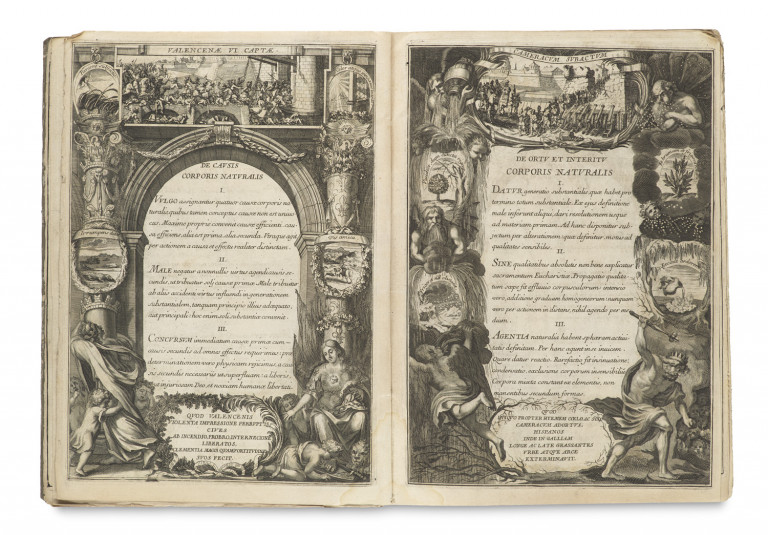 VALENCENÆ VI CAPTÆ
DE CAVSIS
CORPORIS NATVRALIS
I.
VVLGO assignantur quatuor causæ corporis na-
turalis, quibus tamen conceptus causæ non est univo-
cus. Maxime proprius convenit causæ efficienti, cau-
sa efficiens alia est prima, alia secunda. Utraque agit
per actionem a causa et effectu realiter distinctam.
II.
MALE negatur a nonnullis virtus agendi causis se-
cundis, ut tribuatur soli causæ primæ. Male tribuitur
ab aliis accidenti virtus influendi in generationem
substantialem, tanquam principio illius adæquato,
sua principali: hoc enim soli substantiæ convenit.
III.
CONCVRSVM immediatum causæ primæ cum
secundis ad omnes effectus requirimus: præ-
determinationem vere physicam rejicimus, a cau-
sis secundis necessariis ut superfluam: a liberis
ut injuriosam Deo, et nocuam humanæ libertati.
QVOD VALENCENIS
VIOLENTA IMPRESSIONE PERRVPTIS,
CIVES
AB INCENDIO, PRÆDA, INTERNECIONE
LIBERATOS,
CLEMENTIA MAGIS QVAM FORTITVDINE
SVOS FECIT.
CAMERACVM SVBACTVM
DE ORTV ET INTERITV
CORPORIS NATVRALIS
I.
DATVR generatio substantialis, quæ habet pro
termino totum substantiale. Ex ejus definitione
male inferunt aliqui, dari resolutionem usque
ad materiam primam. Ad hanc disponitur sub-
jectum per alterationem, quæ definitur, motus ad
qualitates sensibiles.
II.
SINE qualitatibus absolutis non bene explicatur
sacramentum Eucharistiæ. Propagatio qualita-
tum sæpe fit effluviis corpusculorum: intensio
vero, additione graduum homogeneorum nunquam
vero per actionem in distans, nihil agendo per me-
dium.
III.
AGENTIA naturalia habent sphæram activi-
tatis definitam. Per hanc agunt in se invicem.
Quare datur reactio. Rarefactio fit insinuatione,
condensatio, exclusione corporum insensibilium.
Corpora mixta constant ex elementis, non
manentibus secundum formas.
QVOD
PROPTER HIEMEM
CAMERACVM ADORTVS,
HISPANOS
INDE IN GALLIAM
LONGE AC LATE GRASSANTES
VRBE ATQVE ARCE
EXTERMINAVIT.